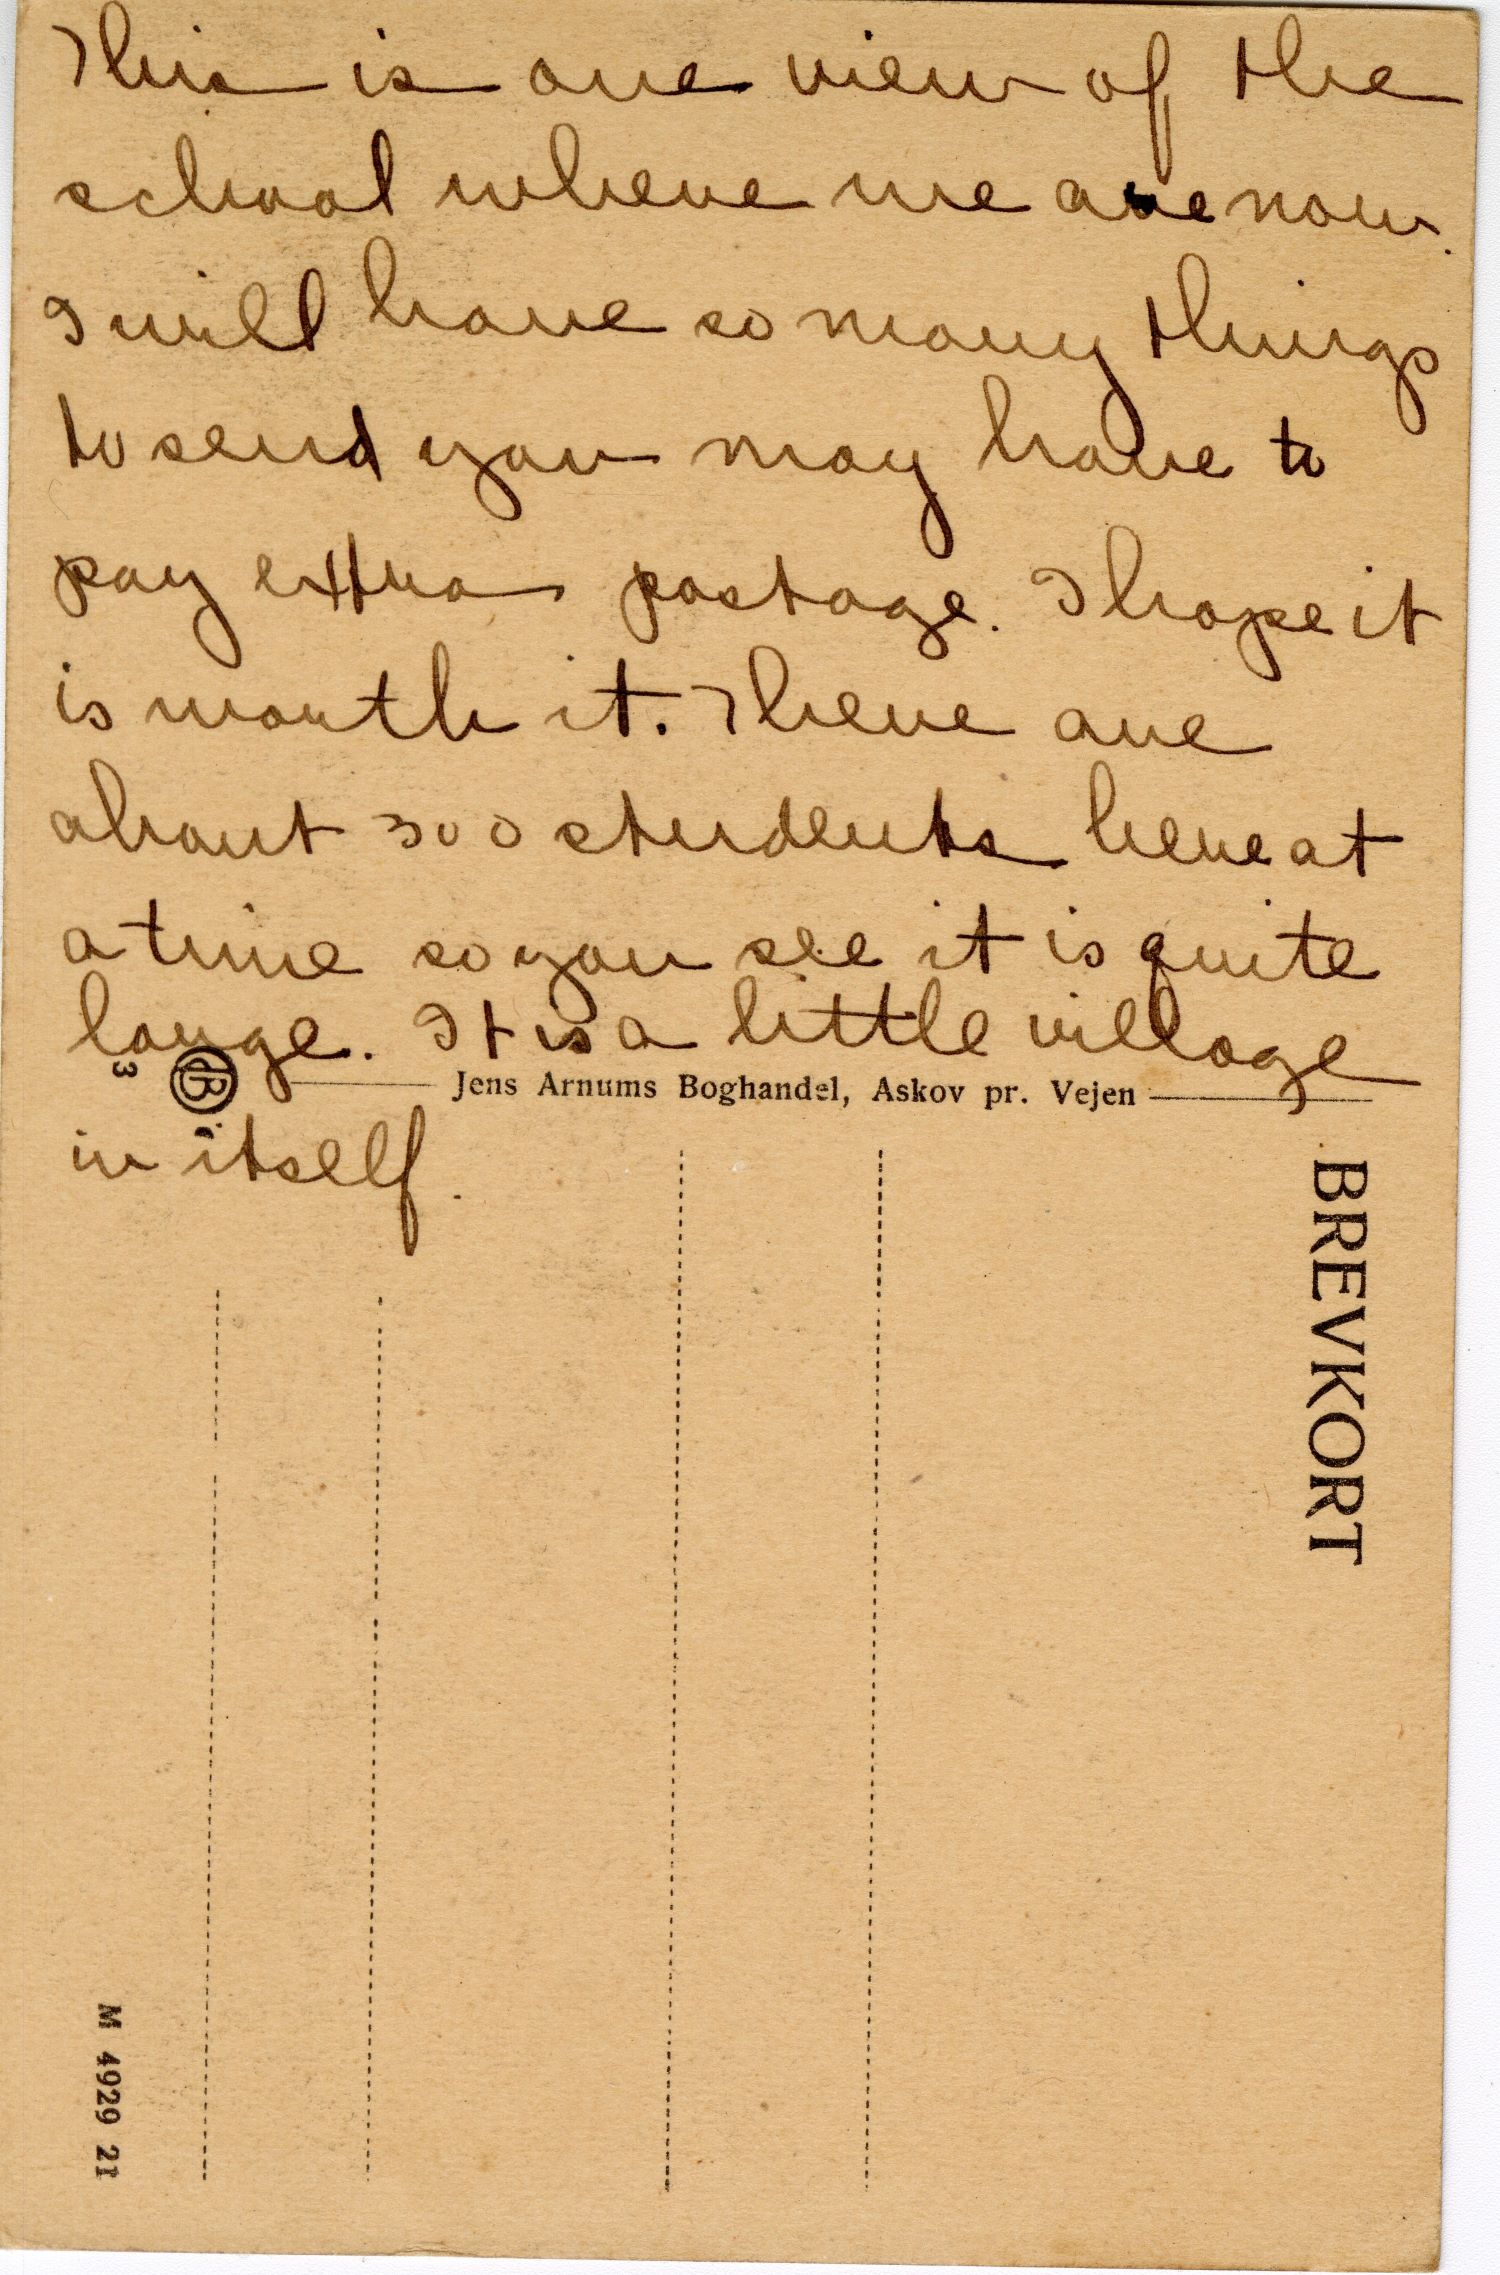 This is one view of the
school where we are now.
I will have so many things
to send you may have to
pay extra postage. I hope it
is worth it. There are
about 300 students here at
a time so you see it is quite
large. It is a little village
in itself.
3
Jens Arnums Boghandel, Askov pr. Vejen
BREVKORT
M 4929 21